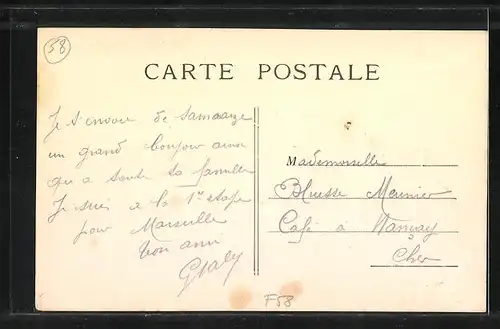 58
CARTE POSTALE
Je t'envoie de
un grand bonjour ainsi
qu'a toute ta famille
Je suis a la 1re etape
pour Marseille
Ton ami
Mademoiselle
Meunier
Café à Nançay
Cher
F58